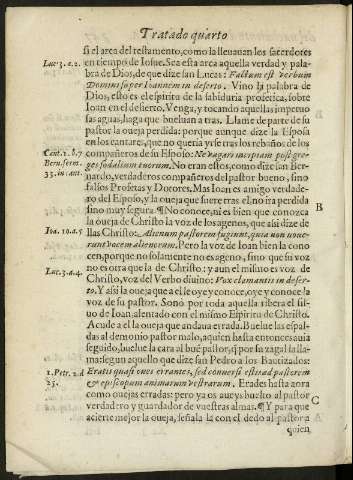 Tratado quarto
si el arca del testamento, como la lleuauan los sacerdores
Luc. 3. a. 2.
en tiempo de Iosue. Sea esta arca aquella verdad y pala-
bra de Dios, de que dize san Lucas: Factum est verbum
Domini super Ioannem in deserto. Vino la palabra de
Dios, esto es el espiritu de la sabiduria profetica, sobre
Ioan en el desierto, Venga, y tocando aquellas impetuo
sas aguas, haga que bueluan a tras. Llame de parte de su
pastor la oueja perdida: porque aunque dize la Esposa
Cant. 1. b. 7
en los cantares, que no queria yrse tras los rebaños de los
Bern. serm.
compañeros de su Esposo: Ne vagari incipiam post gre-
33. in cant.
ges sodalium tuorum. No eran estos, como dize san Ber-
nardo, verdaderos compañeros del pastor bueno, sino
falsos Profetas y Doctores, Mas Ioan es amigo verdade-
ro del Esposo, y la oueja que fuere tras el no yra perdida
B
sino muy segura. ¶ No conoce, ni es bien que conozca
la oueja de Christo la voz de los agenos, que asi dize de
Ioa. 10. a. 5
llas Christo: Alienum pastorem fugiunt, quia non noue-
runt vocem alienorum. Pero la voz de Ioan bien la cono
cen, porque no solamente no es ageno, sino que su voz
no es otra que la de Christo: y aun el mismo es voz de
Luc. 3. a. 4.
Christo, voz del Verbo diuino: Vox clamantis in deser-
to. Y asi la oueja que a el le oye y conoce, oye y conoce la
voz de su pastor. Sonò por toda aquella ribera el sil-
uo de Ioan, alentado con el mismo Espiritu de Christo.
Acude a el la oueja que andaua errada. Buelue las espal-
das al demonio pastor malo, a quien hasta entonces auia
seguido, buelue la cara al buẽ pastor, q̃ por su zagal la lla-
ma: segun aquello que dize san Pedro a los Bautizados:
1. Petr. 2. d
Eratis quasi oues errantes, sed conuersi estis ad pastorem
25.
& episcopum animarum vestrarum. Erades hasta aora
como ouejas erradas: pero ya os aueys buelto al pastor
C
verdadero y guardador de vuestras almas. ¶ Y para que
acierte mejor la oueja, señala la con el dedo al pastor a
quien